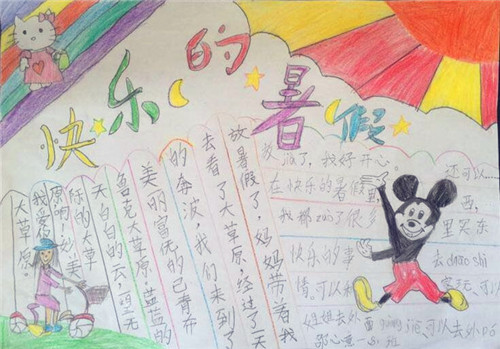 快乐的暑假
放暑假了,妈妈带着我
去看了大草原,经过了一天
的奔波,我们来到了
美丽富
鲁克大草原,蓝蓝的
天白白的云,望无
际的大草
原啊!
我爱你
大草原。
放假了,我好开心
在快乐的暑假里
我都zuo了很多
快乐的事
情。可以和
姐姐去外面
还可以
去chao shi
里买东
西,
可以去外